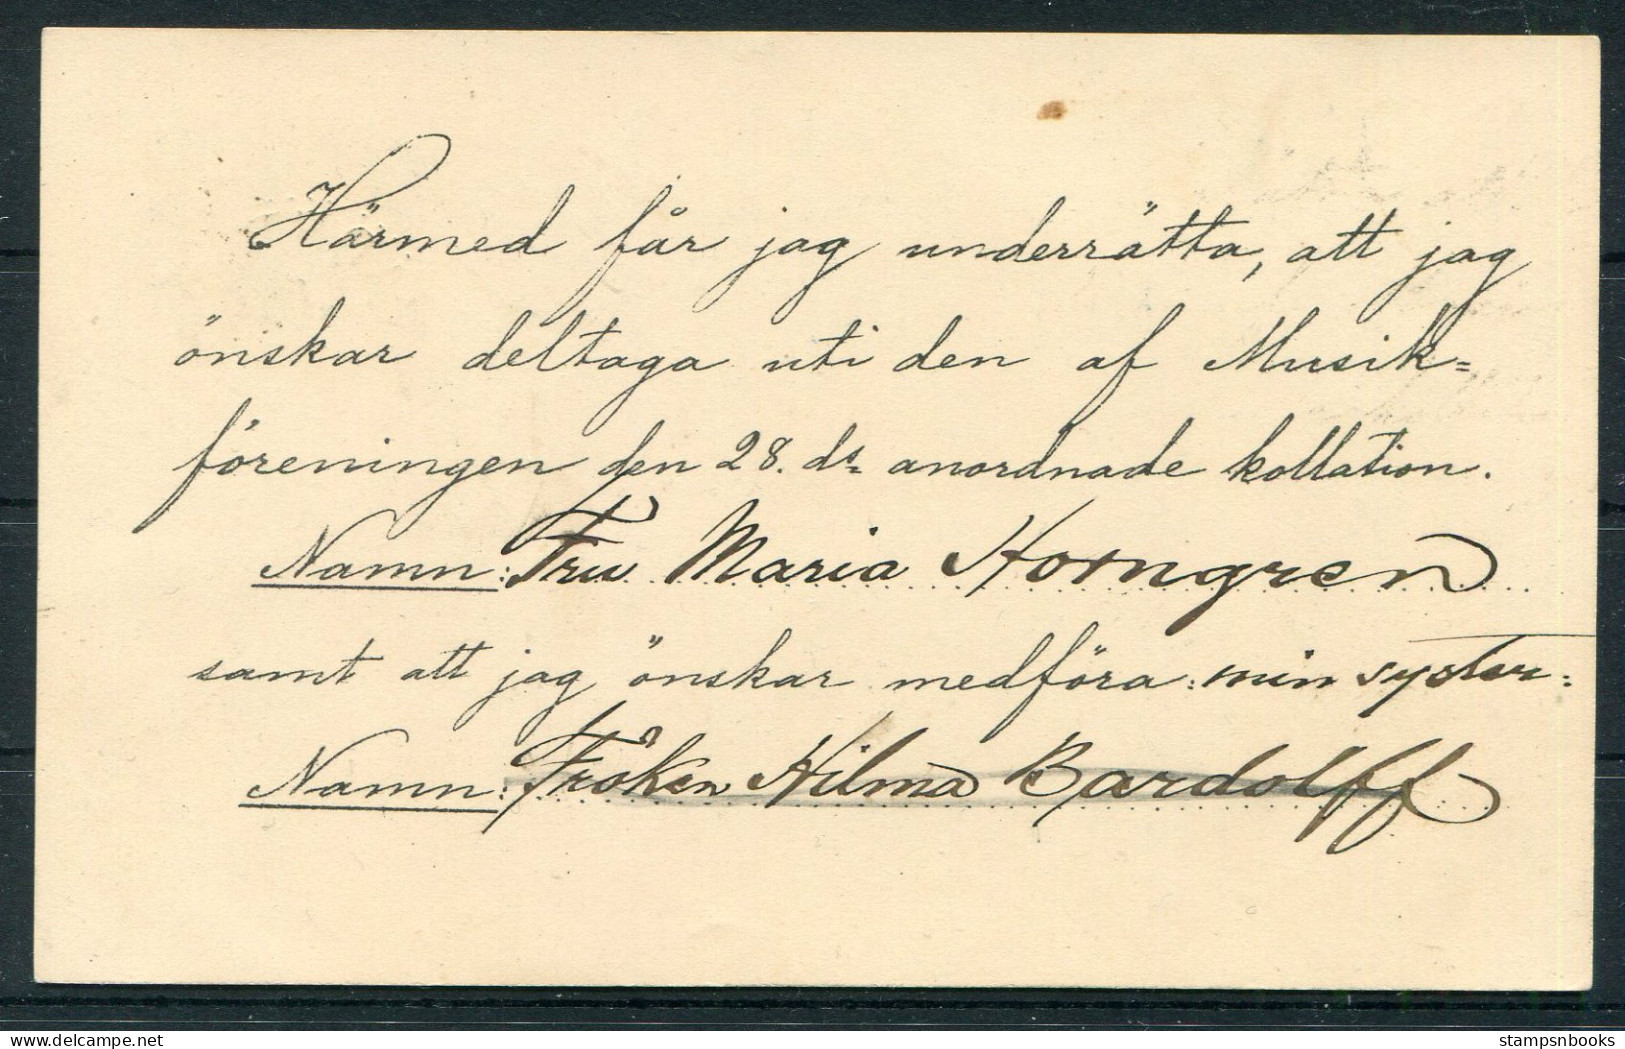 Härmed får jag underrätta, att jag
önskar deltaga uti den af Musik=
föreningen den 28. ds. anordnade kollation.
Namn: Fru Maria Horngren
samt att jag önskar medföra: min syster:
Namn: Fröken Hilma Bardolff
stampsnbooks
delcampe.net